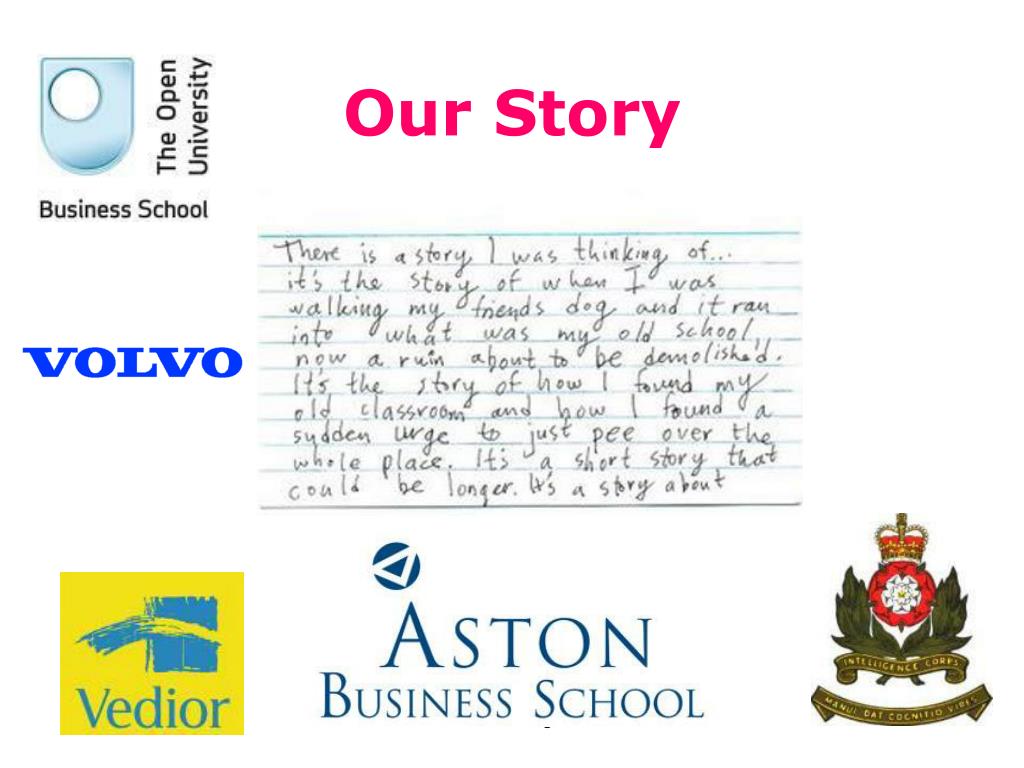 The Open
University
Business School
Our Story
There is a story I was thinking of...
it's the story of when I was
walking my friends dog and it ran
into what was my old school,
now a ruin about to be demolished.
It's the story of how I found my
old classroom and how I found a
sudden urge to just pee over the
whole place. It's a short story that
could be longer. It's a story about
VOLVO
Vedior
ASTON
BUSINESS SCHOOL
INTELLIGENCE CORPS
MANUI DAT COGNITIO VIRES